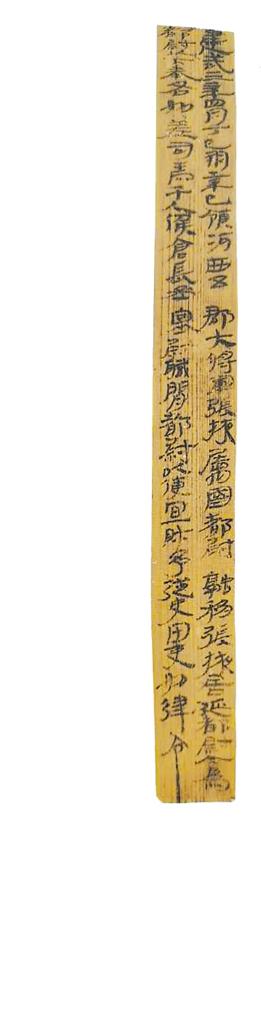 建武三年四月丁巳朔辛巳領河西五郡大將軍張掖屬國都尉融移張掖居延都尉今為
都尉以下奉各如差司馬千人候倉長丞塞尉職閒都尉以便宜財予從史田吏如律令